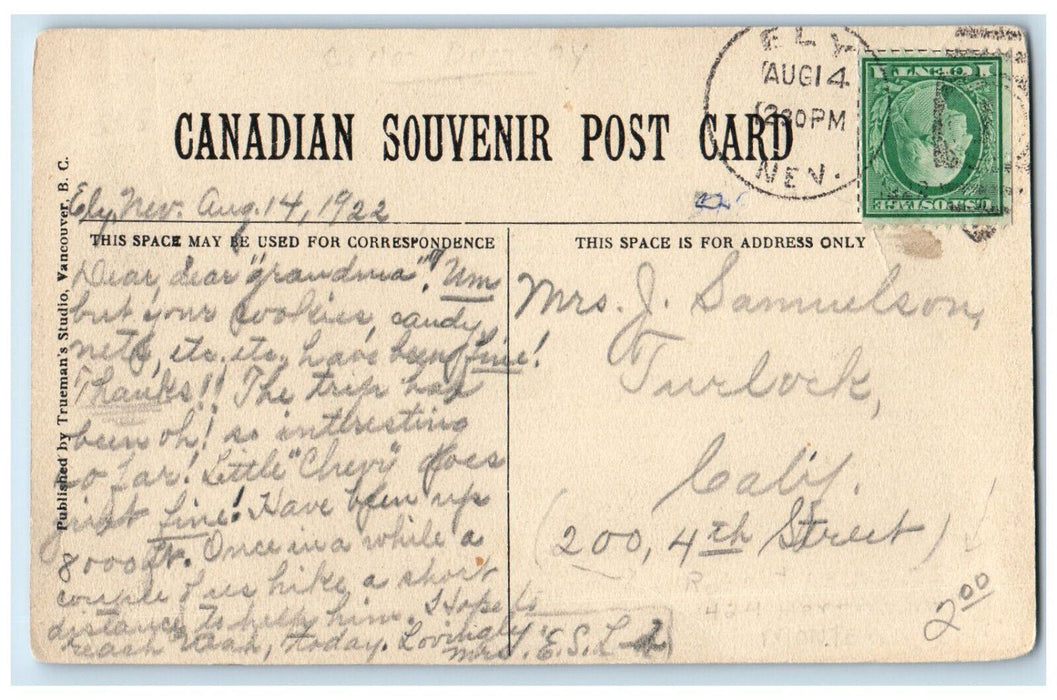 ELY
AUG 14
1230 PM
NEV.
CANADIAN SOUVENIR POST CARD
Ely, Nev. Aug. 14, 1922
THIS SPACE MAY BE USED FOR CORRESPONDENCE
THIS SPACE IS FOR ADDRESS ONLY
Published by Trueman's Studio, Vancouver, B. C.
Dear, dear "grandma"! Um
but your cookies, candy,
nets, etc. etc. have been fine!
Thanks!! The trip has
been oh! so interesting
so far! Little "Chevi" goes
just fine! Have been up
8000 ft. Once in a while a
couple of us hike a short
distance to help him. Hope to
reach Utah, today. Lovingly
Mrs. E.S.L
Mrs. J. Samuelson,
Turlock,
Calif.
(200, 4th Street)
2 00
ONE CENT
U.S. POSTAGE